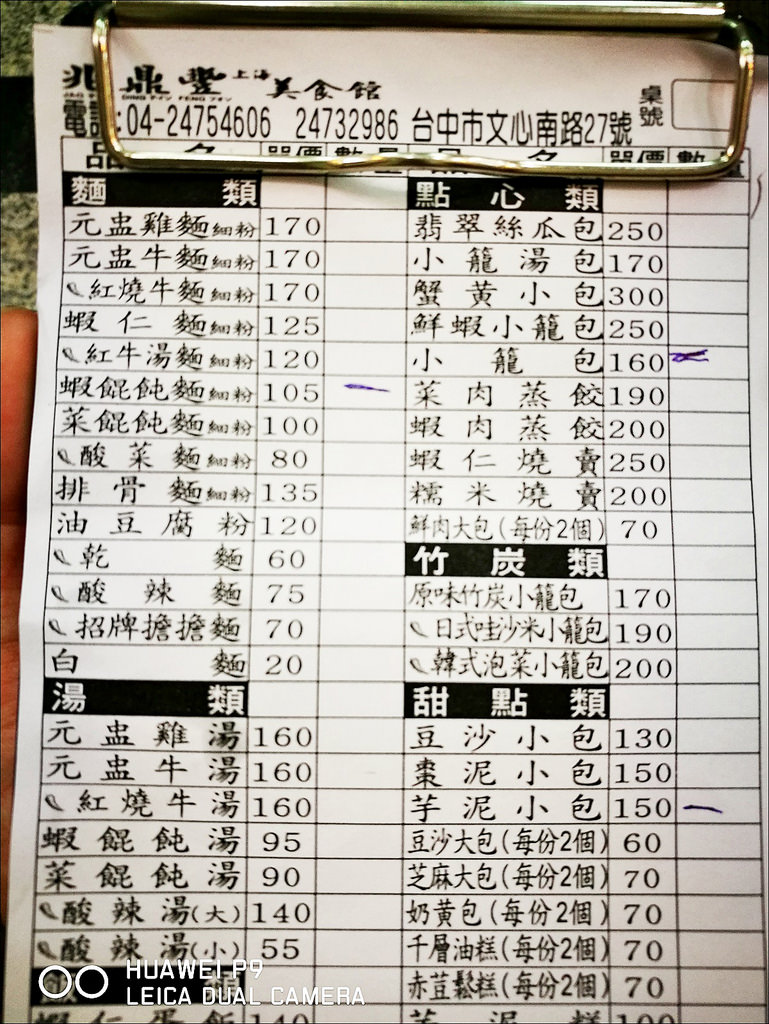 兆鼎豐上海美食館
電話:04-24754606 24732986 台中市文心南路27號
桌號
品名 單價 數量 品名 單價 數量
麵類
元盅雞麵細粉 170
元盅牛麵細粉 170
紅燒牛麵細粉 170
蝦仁麵細粉 125
紅牛湯麵細粉 120
蝦餛飩麵細粉 105
菜餛飩麵細粉 100
酸菜麵細粉 80
排骨麵細粉 135
油豆腐粉 120
乾麵 60
酸辣麵 75
招牌擔擔麵 70
白麵 20
湯類
元盅雞湯 160
元盅牛湯 160
紅燒牛湯 160
蝦餛飩湯 95
菜餛飩湯 90
酸辣湯(大) 140
酸辣湯(小) 55
飯類
蝦仁蛋飯 140
點心類
翡翠絲瓜包 250
小籠湯包 170
蟹黃小包 300
鮮蝦小籠包 250
小籠包 160
菜肉蒸餃 190
蝦肉蒸餃 200
蝦仁燒賣 250
糯米燒賣 200
鮮肉大包(每份2個) 70
竹炭類
原味竹炭小籠包 170
日式哇沙米小籠包 190
韓式泡菜小籠包 200
甜點類
豆沙小包 130
棗泥小包 150
芋泥小包 150
豆沙大包(每份2個) 60
芝麻大包(每份2個) 70
奶黃包(每份2個) 70
千層油糕(每份2個) 70
赤荳鬆糕(每份2個) 70
芋泥糕 100
HUAWEI P9
LEICA DUAL CAMERA